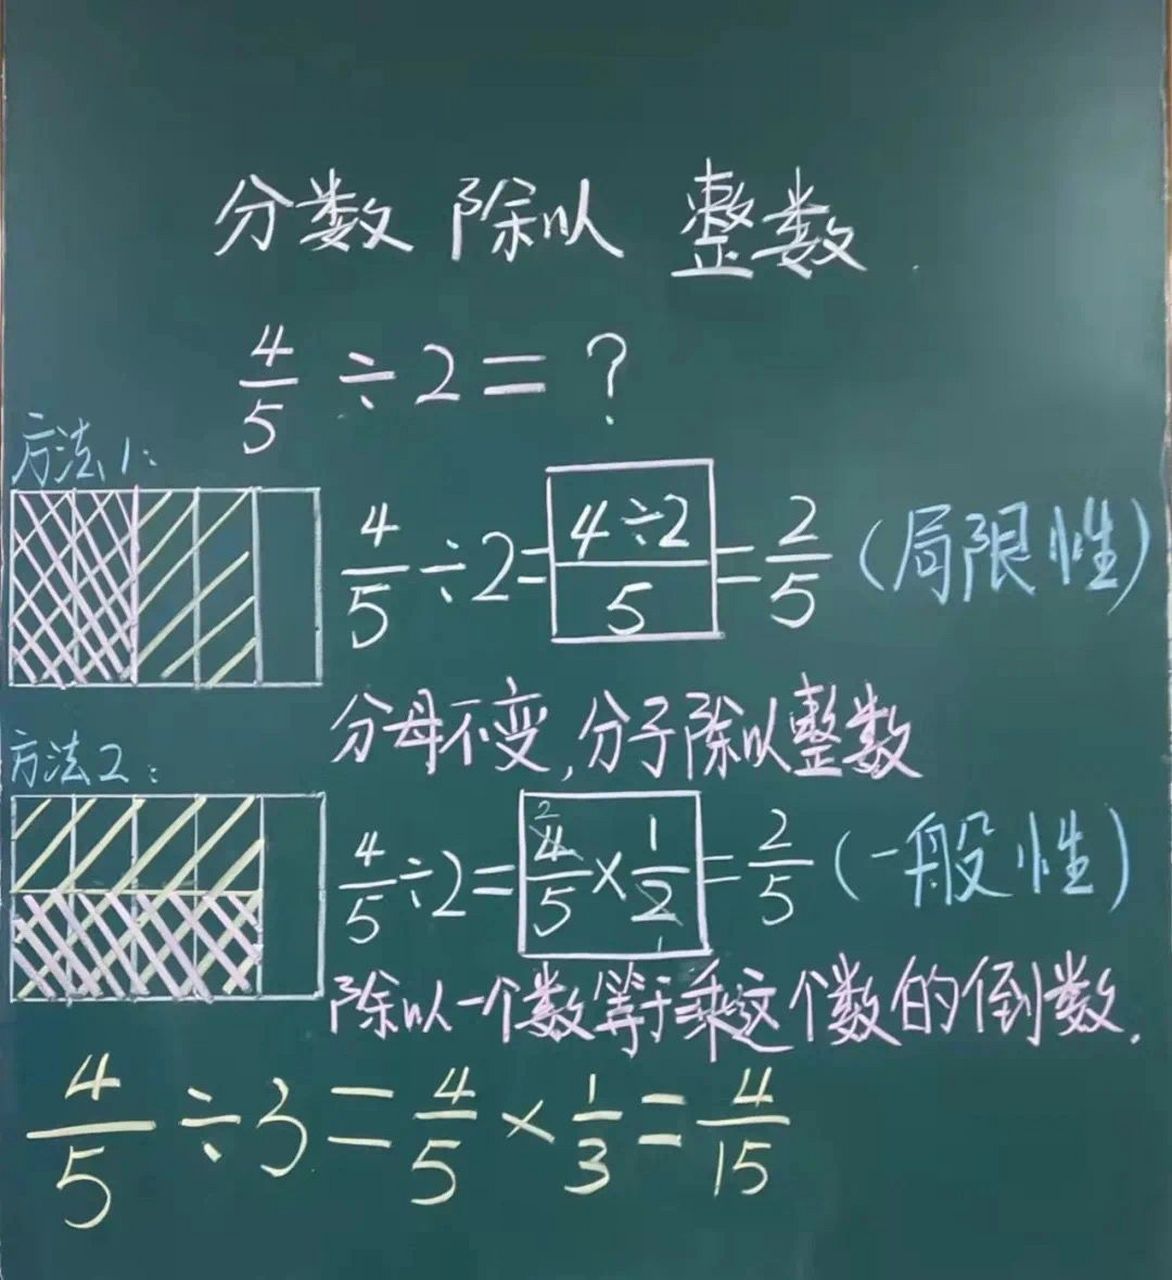 分数 除以 整数
4/5 ÷ 2 = ?
方法1:
4/5 ÷ 2 = (4÷2)/5 = 2/5 (局限性)
分母不变,分子除以整数
方法2:
4/5 ÷ 2 = 4/5 × 1/2 = 2/5 (一般性)
2
1
除以一个数等于乘这个数的倒数.
4/5 ÷ 3 = 4/5 × 1/3 = 4/15